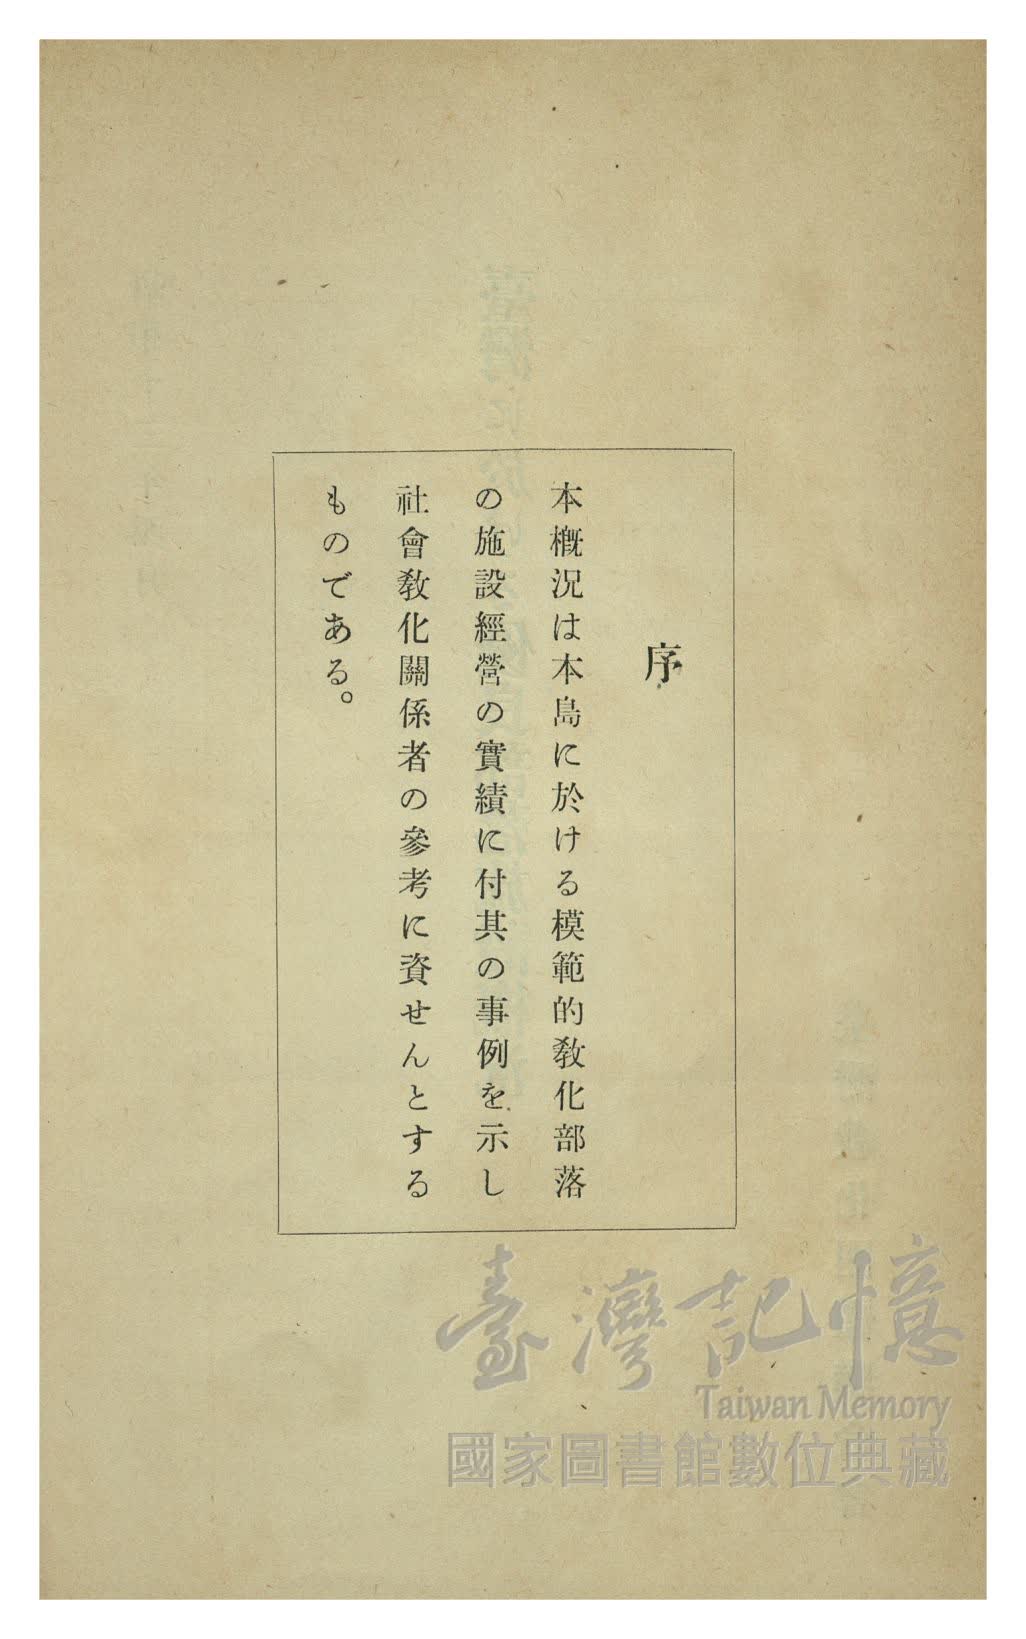 序
本槪況は本島に於ける模範的敎化部落
の施設經營の實績に付其の事例を示し
社會敎化關係者の參考に資せんとする
ものである。
臺灣記憶
Taiwan Memory
國家圖書館數位典藏